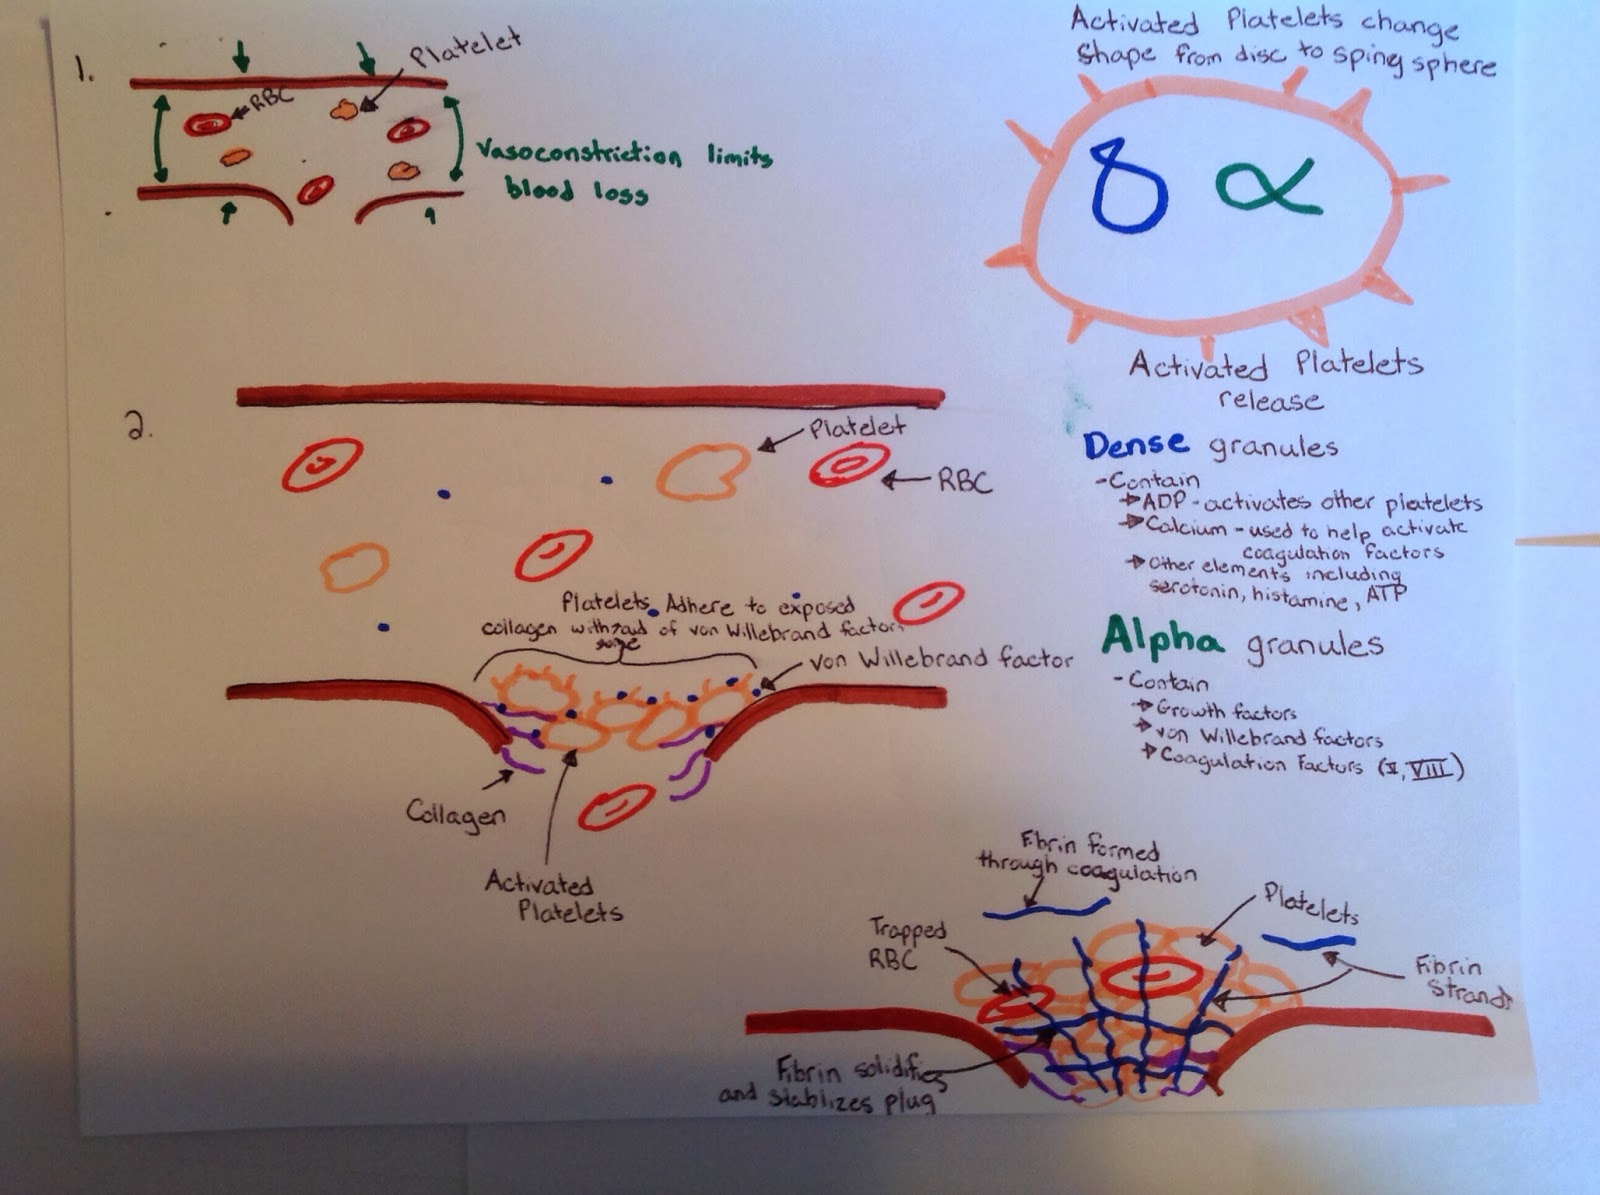 1.
Platelet
RBC
Vasoconstriction limits
blood loss
Activated Platelets change
shape from disc to spiny sphere
δ α
Activated Platelets
release
Dense granules
- Contain
→ ADP - activates other platelets
→ Calcium - used to help activate
coagulation factors
→ Other elements including
serotonin, histamine, ATP
Alpha granules
- Contain
→ Growth factors
→ von Willebrand factors
→ Coagulation Factors (V, VIII)
2.
Platelet
RBC
Platelets Adhere to exposed
collagen with aid of von Willebrand factors
von Willebrand factor
Collagen
Activated
Platelets
Fibrin formed
through coagulation
Platelets
Trapped
RBC
Fibrin
Strands
Fibrin solidifies
and stablizes plug